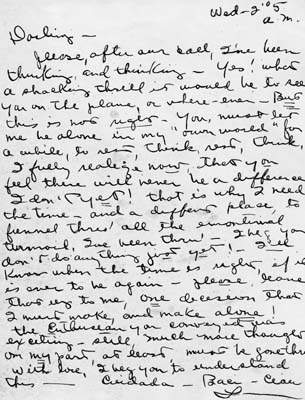 Wed - 2:05
a.m.
Darling -
Please, after our call, I've been
thinking, and thinking - Yes! what
a shocking thrill it would be to see
you on the plane, or where-ever - But
this is not right - You, must let
me be alone in my "own world" for
a while, to rest, think, rest, think,
I fully realize now that you
feel there will never be a difference
I don't yet! that is why I need
the time - and a different place, to
funnel thru' all the emotional
turmoil, I've been thru! - I beg you
don't do anything just yet! - I'll
know when the time is right, if it
is ever to be again - please, leave
that up to me, one decision that
I must make, and make alone!
the Enthusiasm you conveyed was
exciting - still, much more thought
on my part, at least, must be
with love, I beg you to understand
this -